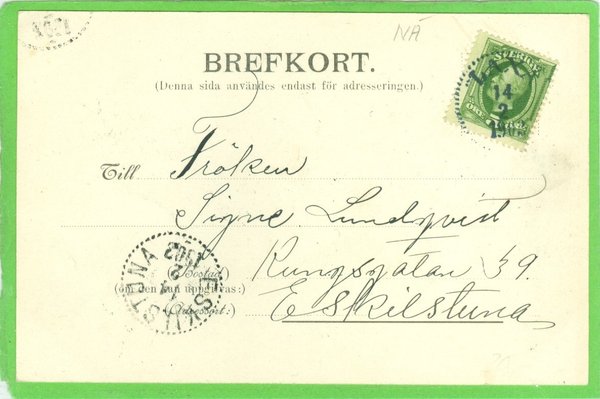 NÄ
BREFKORT.
(Denna sida användes endast för adresseringen.)
SVERIGE
14
2
Till Fröken
Signe Lundqvist
(Bostad)
Kungsgatan 39.
(om den kan uppgifvas:)
Eskilstuna
(Adressort:)
ESKILSTUNA
14
2
1902